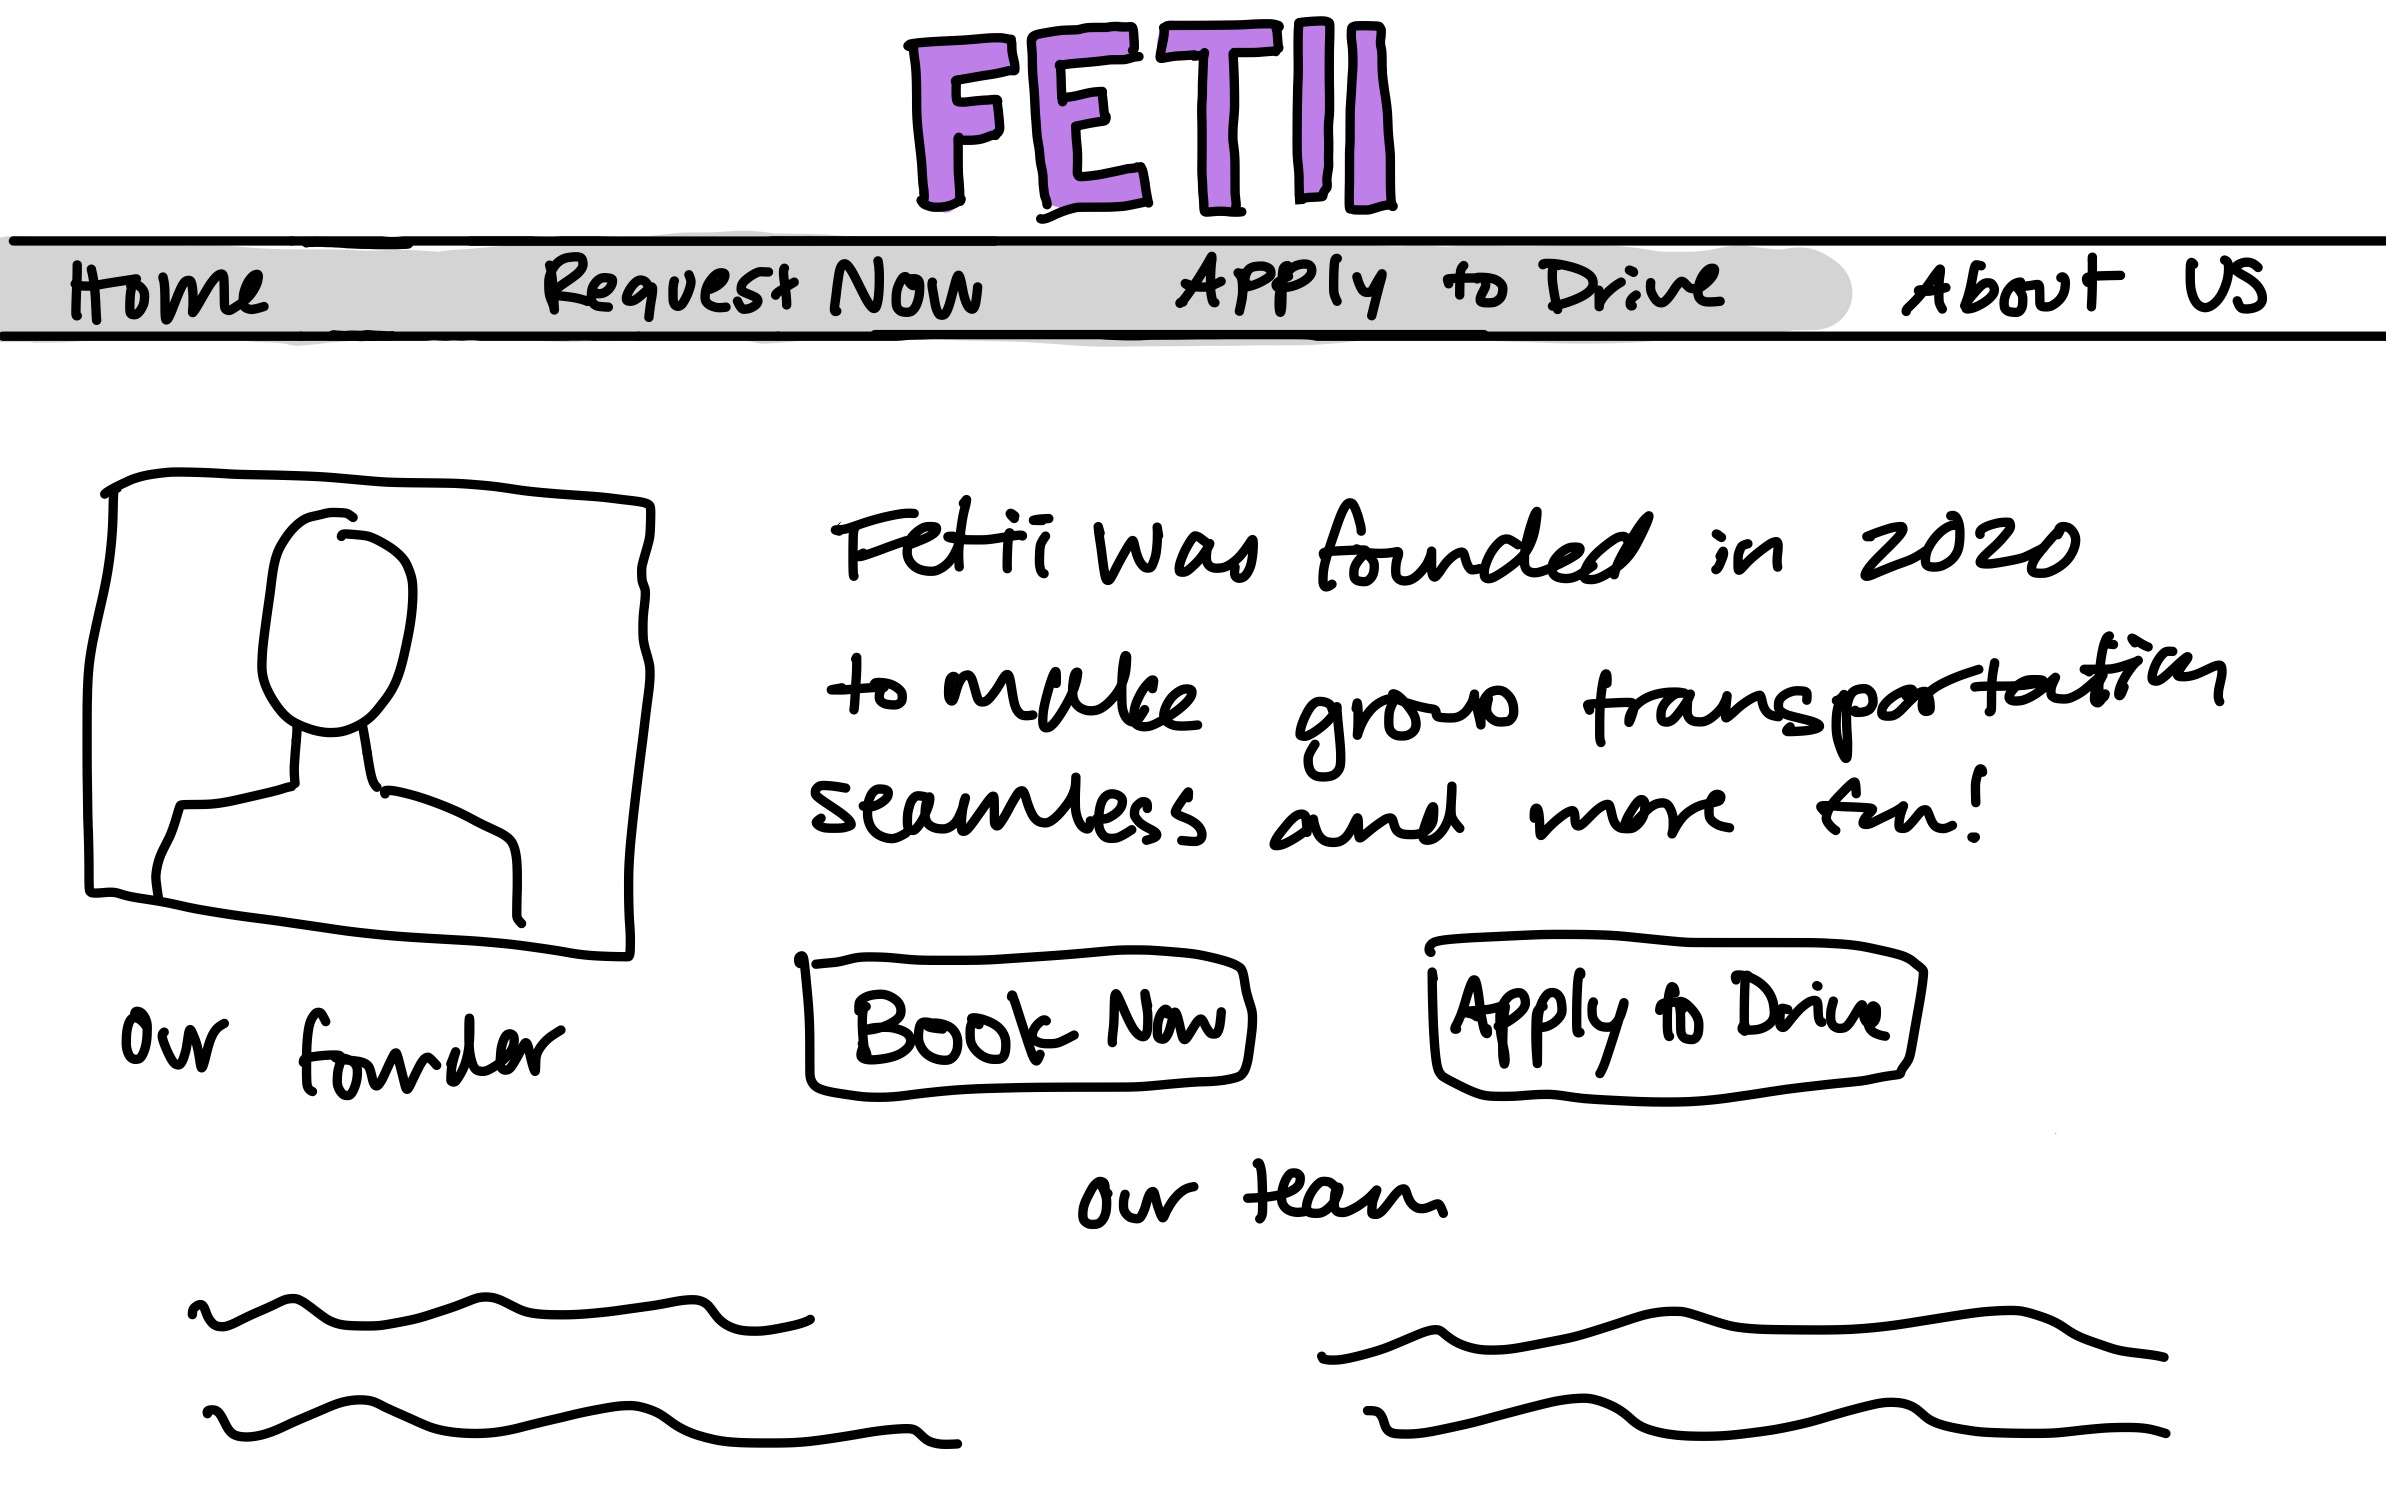 FETII
Home Request Now Apply to Drive About US
Fetii was founded in 2020
to make group transportation
seamless and more fun!
our founder
Book Now
Apply to Drive
our team